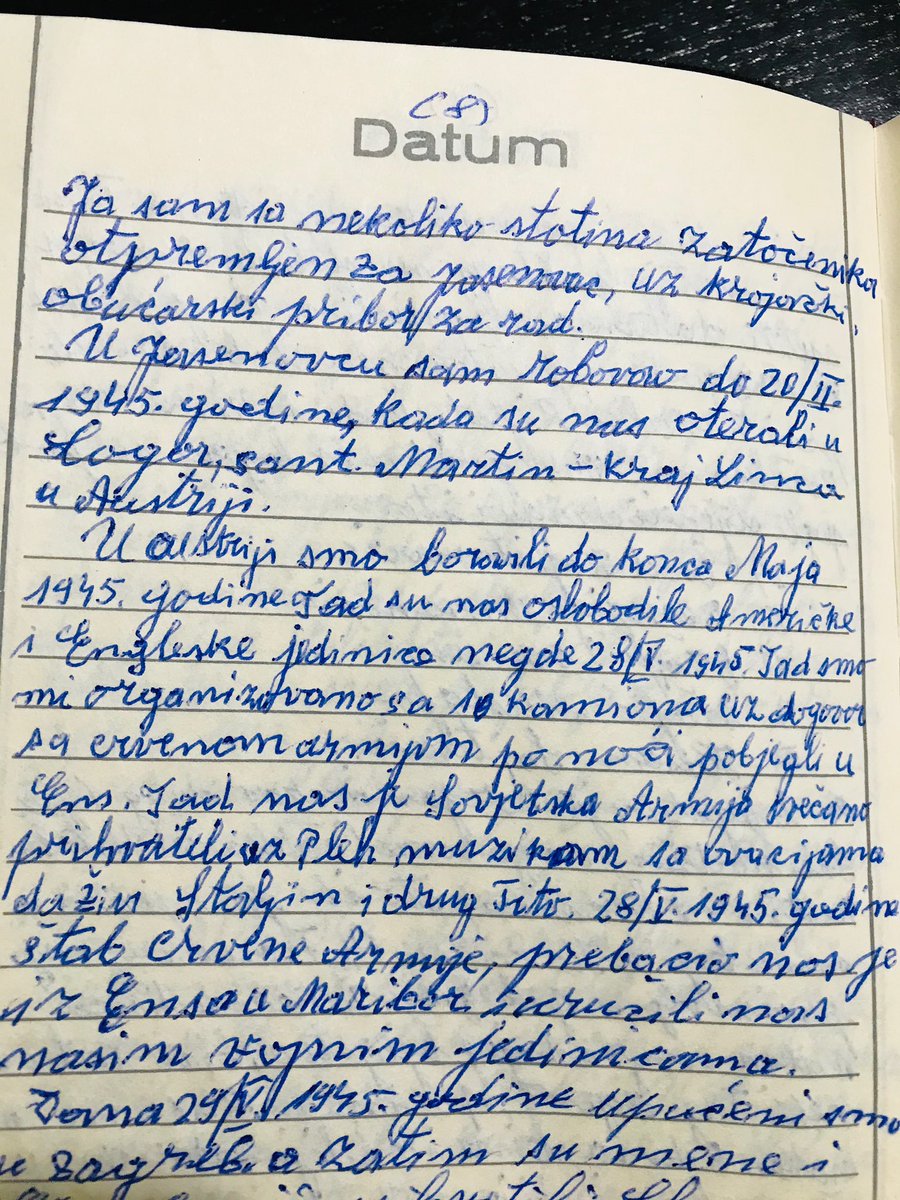 (8)
Datum
Ja sam sa nekoliko stotina zatočenika
otpremljen za Jasenovac, uz krojački,
obućarski pribor za rad.
U Jasenovcu sam robovao do 20/II.
1945. godine, kada su nas oterali u
Logor, sant. Martin – kraj Linca
u Austriji.
U Austriji smo boravili do konca Maja
1945. godine Tad su nas oslobodile Američke
i Engleske jedinice negde 28/V. 1945. Tad smo
mi organizovano sa 10 kamiona uz dogovor
sa crvenom armijom po noći pobjegli u
Ens. Tad nas je Sovjetska Armija svečano
prihvatili uz Pleh muzikom sa ovacijama
da živi Staljin i drug Tito. 28/V. 1945. godine
štab Crvene Armije, prebacio nas je
iz Ensa u Maribor i uručili nas
našim vojnim jedinicama.
Dana 29/V. 1945. godine upućeni smo
u Zagreb. a zatim su mene i